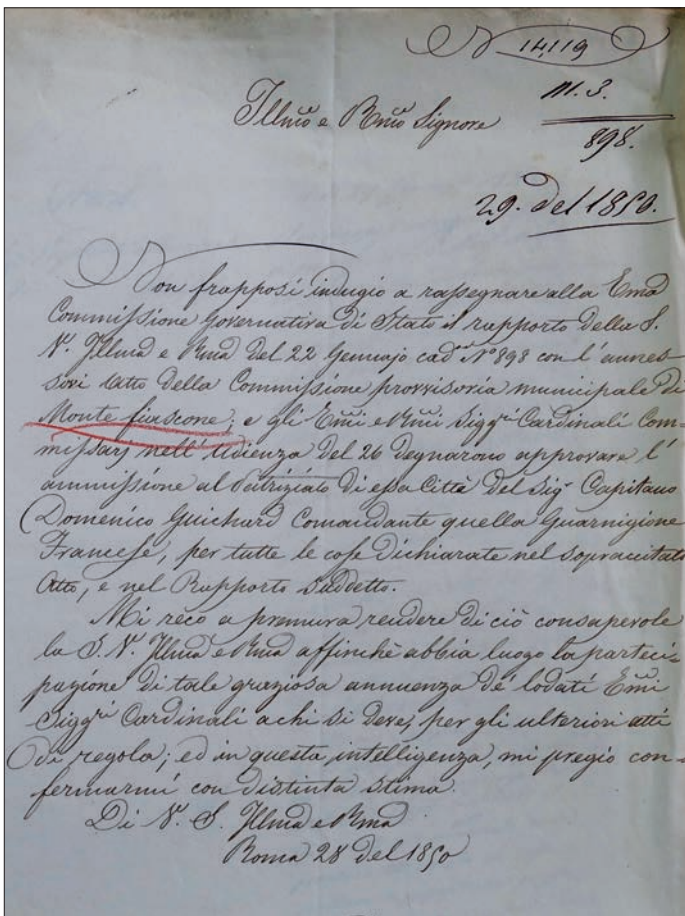 14119
Illmo e Rmo Signore
M. 3.
898.
29. del 1850.
Non frapposi indugio a rassegnare alla Ema
Commissione Governativa di Stato il rapporto della S.
V. Illma e Rma del 22 Gennajo cadte N° 898 con l'annes=
sovi Atto della Commissione provvisoria municipale di
Montefiascone; e gli Emi e Rmi Siggri Cardinali Com=
missarj nell'Udienza del 26 degnarono approvare l'
ammissione al Patriziato di essa Città del Sigr Capitano
Domenico Guichard Comandante quella Guarnigione
Francese, per tutte le cose dichiarate nel sopraccitato
Atto, e nel Rapporto suddetto.
Mi reco a premura rendere di ciò consapevole
la S. V. Illma e Rma affinchè abbia luogo la parteci=
pazione di tale graziosa annuenza de' lodati Emi
Siggri Cardinali a chi si deve, per gli ulteriori atti
di regola; ed in questa intelligenza, mi pregio con=
fermarmi con distinta stima.
Di V. S. Illma e Rma
Roma 28 del 1850